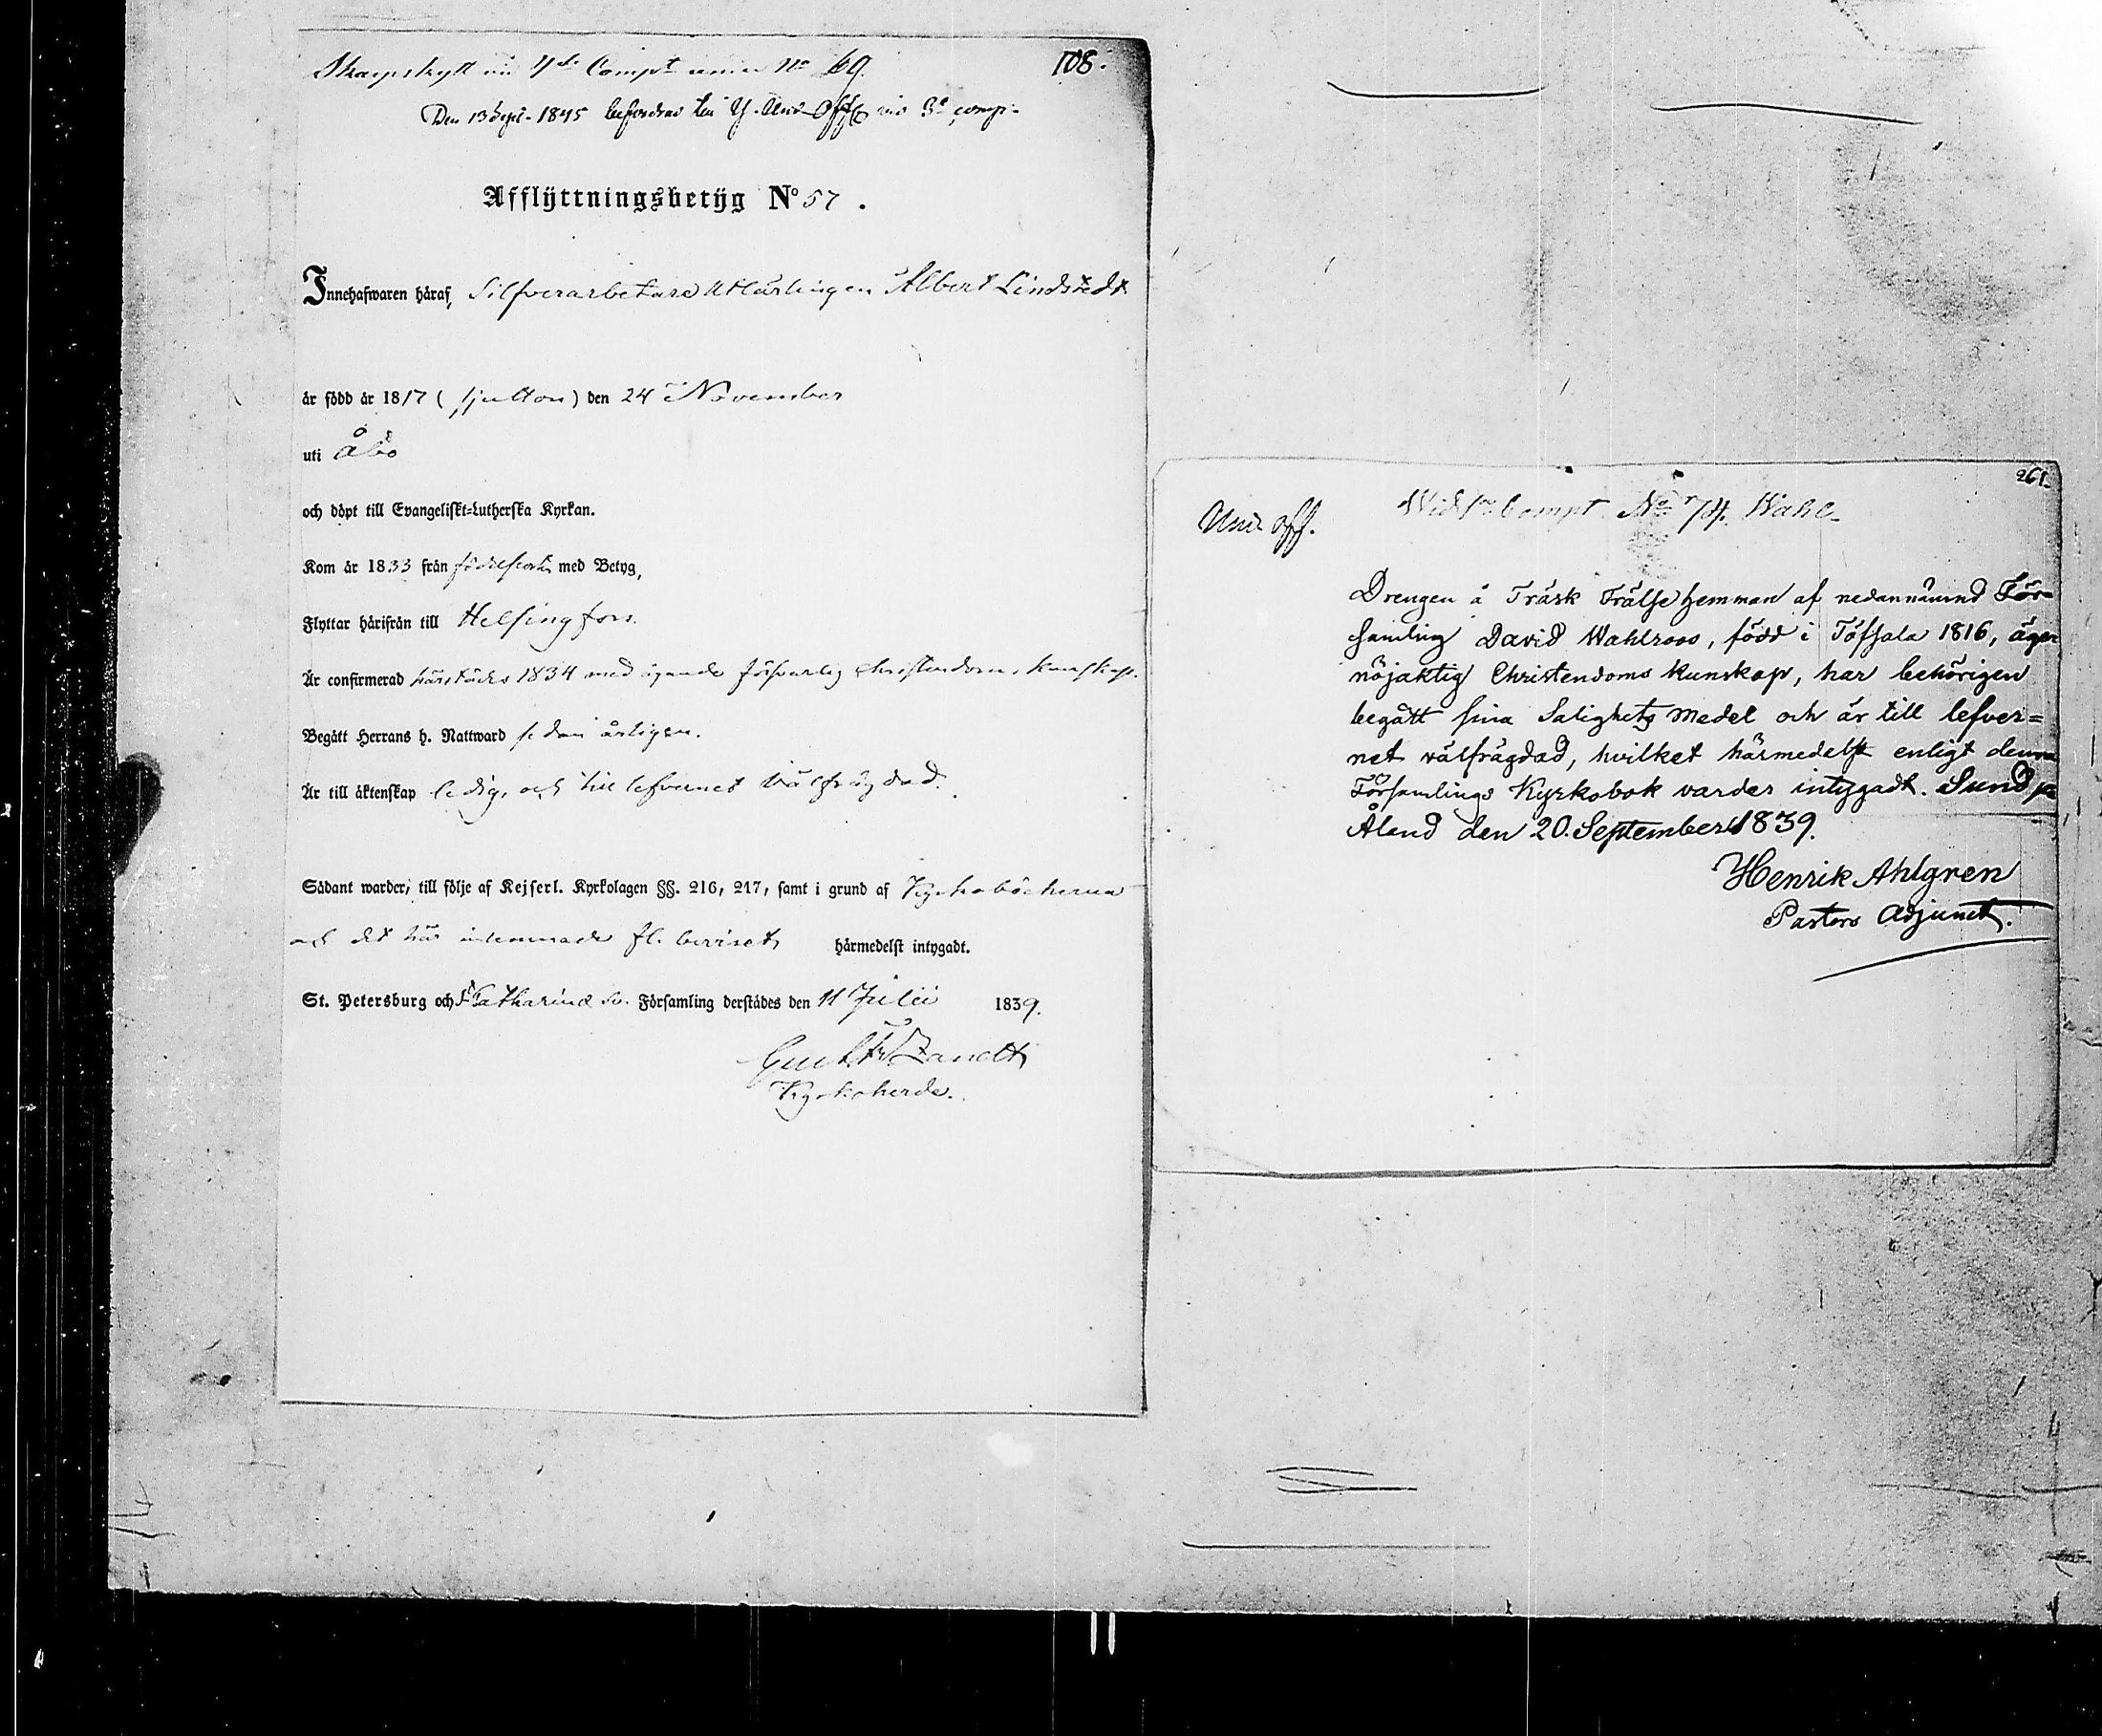 108.
Skarpskytt vid 4de Compt under No 69.
Den 13 Sept. 1845 befordrad till Y. Und-Off vid 3e comp.
Afflÿttningsbetÿg No 57.
Innehafwaren häraf, Silfverarbetare Utlärlingen Albert Lindstedt
är född år 1817 (sjutton) den 24 November
uti Åbo
och döpt till Evangeliskt-Lutherska Kyrkan.
Kom år 1833 från födelseort med Betyg,
Flyttar härifrån till Helsingfors.
Är confirmerad härstädes 1834 med ägande försvarlig christendoms kunskap.
Begått Herrans h. Nattward sedan årligen.
Är till äktenskap ledig, och till lefvernet välfrägdad.
Sådant warder, till följe af Kejserl. Kyrkolagen §§. 216, 217, samt i grund af Kyrkoböckerna
och det här inlemnade fl. beviset, härmedelst intygadt.
St. Petersburg och St Catharina Sv. Församling derstädes den 11 Julii 1839.
Gust. Fr. Zandt
Kyrkoherde.
261.
Und. off.
Vid 1a Compt. No 74. Wahl-
Drengen å Träsk Frälse hemman af nedannämnd För-
samling David Wahlroos, född i Töfsala 1816, äger
nöjaktig Christendoms kunskap, har behörigen
begått sina Salighets medel och är till lefver=
net välfrägdad, hvilket härmedelst enligt denna
Församlings Kyrkobok varder intygadt. Sund på
Åland den 20. September 1839.
Henrik Ahlgren
Pastors Adjunct.